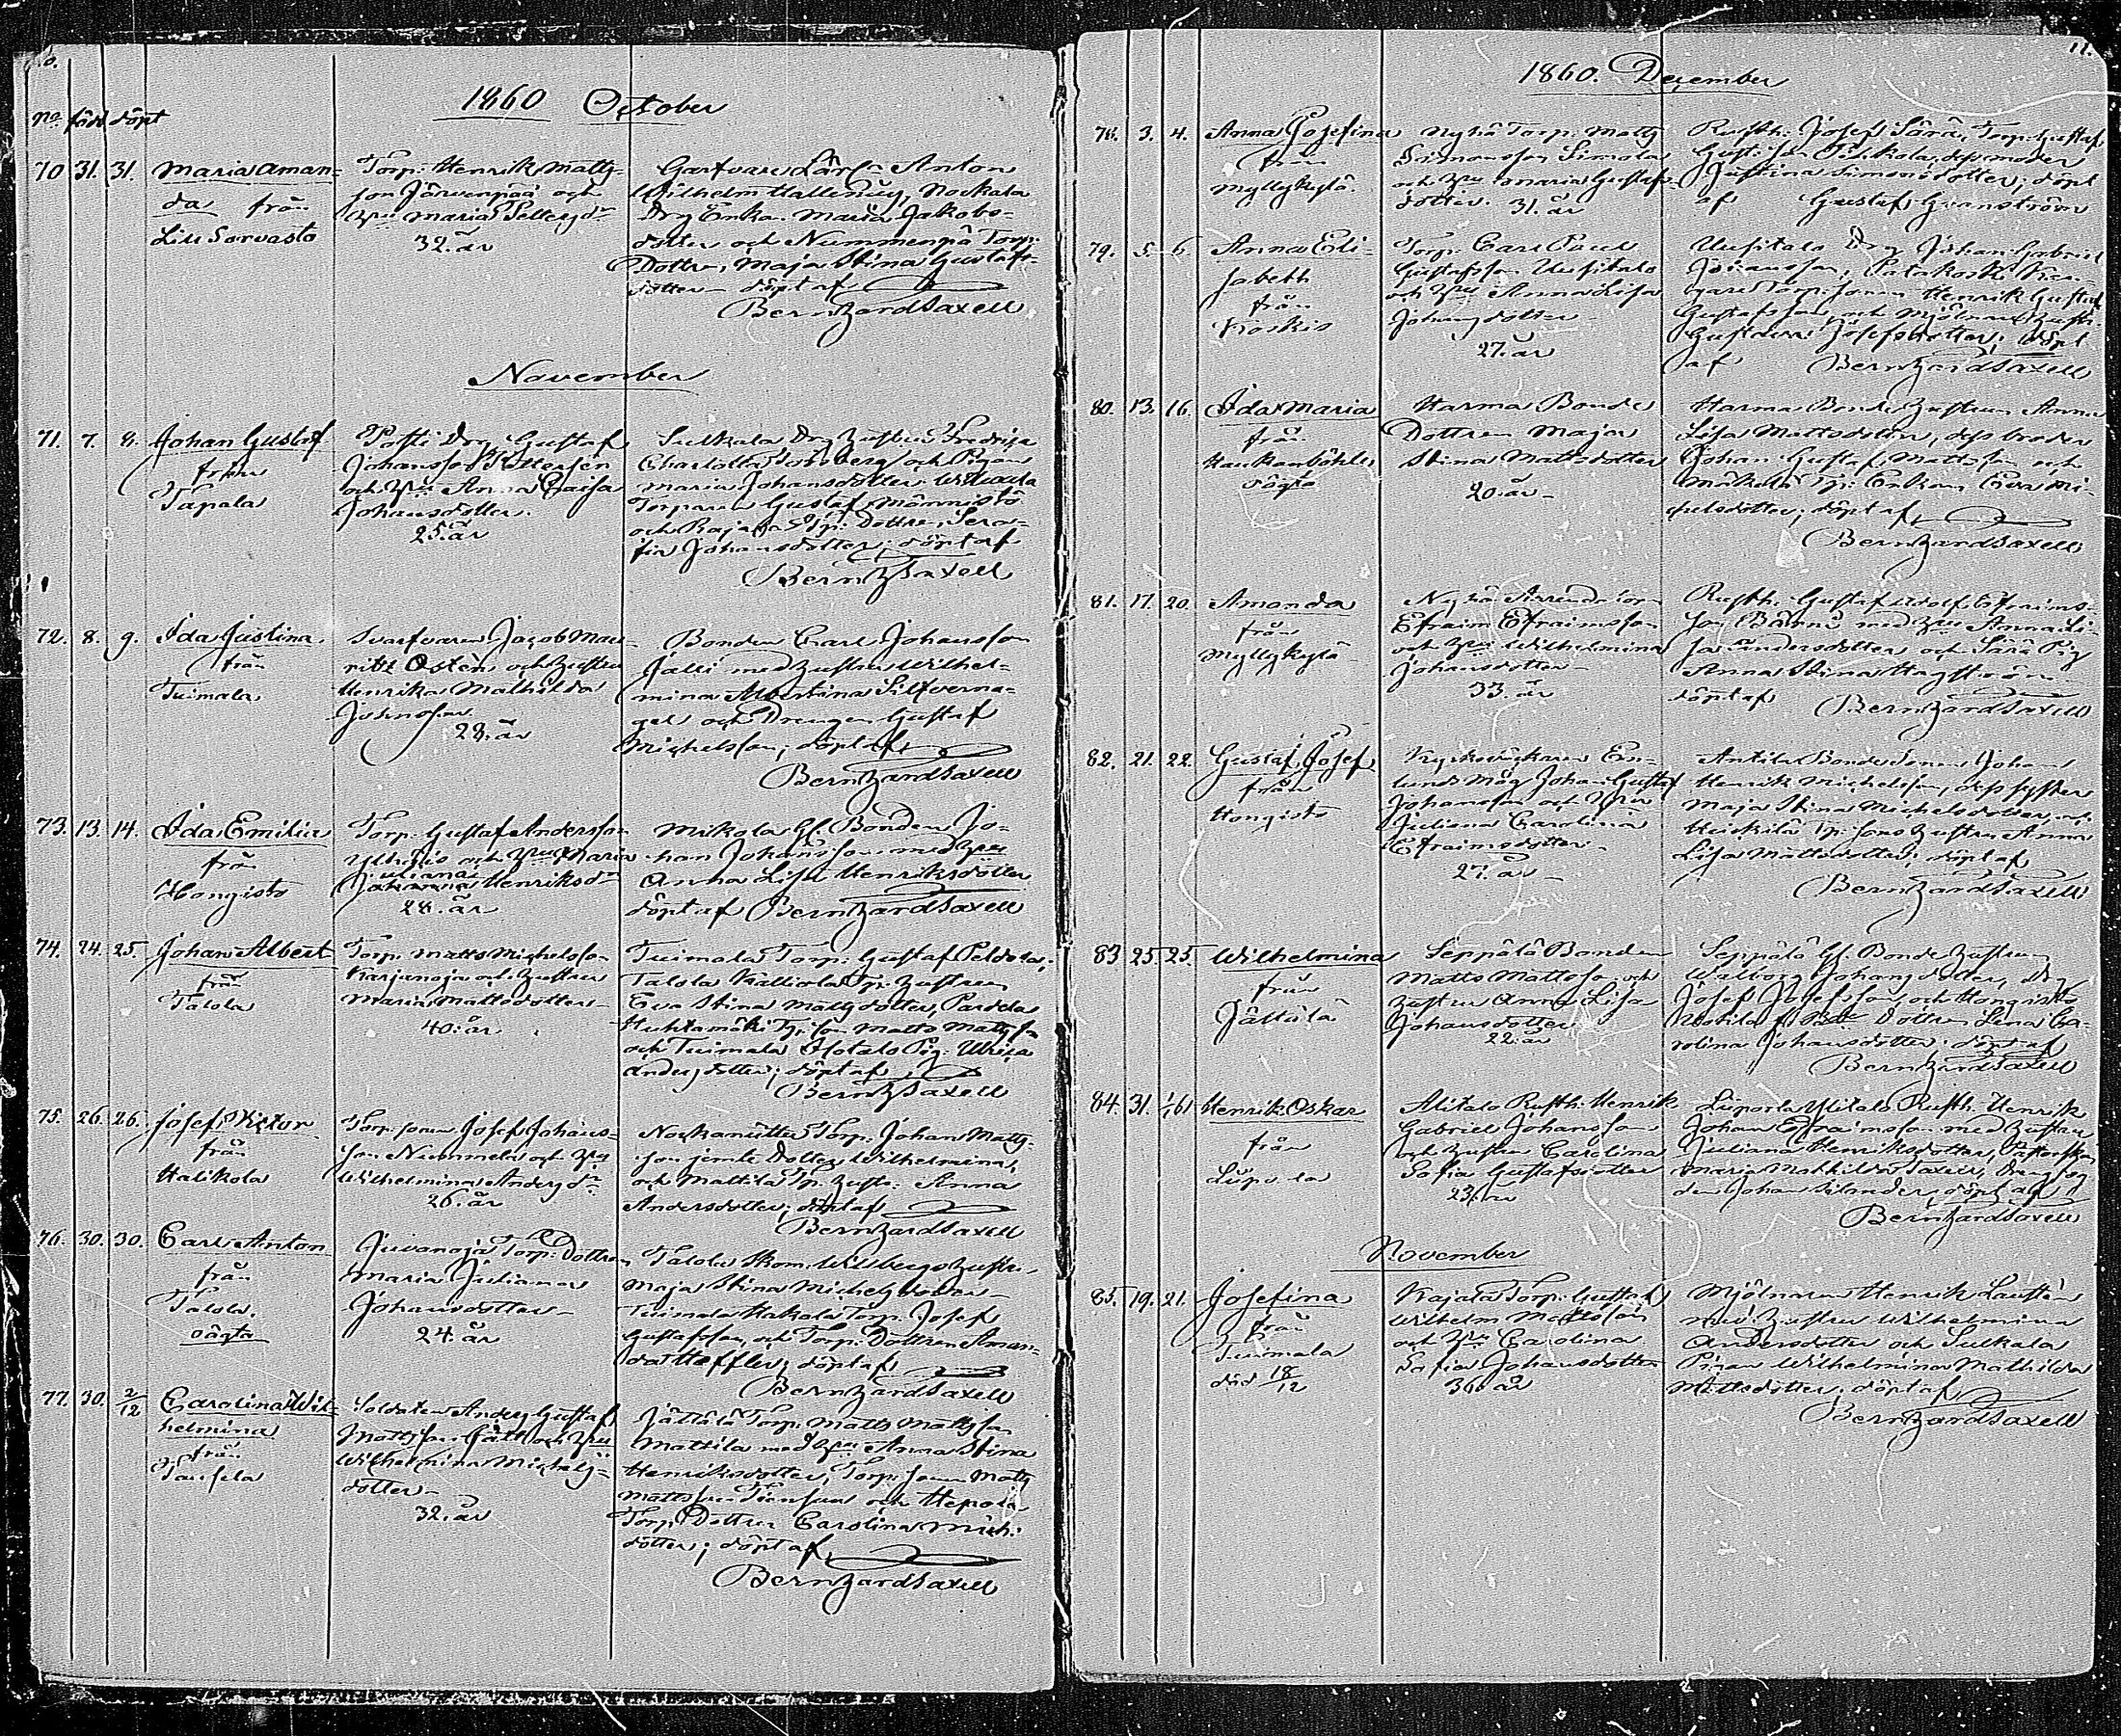 1860 October
No född döpt
70 31. 31. Maria Aman-
da från
Lill Sorvasto
Torp: Henrik Matts-
son Järvenpää och
hru Maria Petters dr
32. år
Garfvare Lärl: Anton
Wilhelm Hallenberg, Nockala
Drg Enka Maria Jakobs-
dotter och Nummenpä Torp:
Dottren, Maja Stina Gustafs-
dotter döpt af
Bernhard Saxell
November
71. 7. 8. Johan Gustaf
från
Tapala
Posti Drg Gustaf
Johansson
och hru Anna Caisa
Johansdotter.
25. år
Sulkala Drg hustru Fredrika
Charlotta och Pigan
Maria Johansdotter
Torparen Gustaf Männistö
och Rajala Tp: Dottren, Sera-
fia Johansdotter; döpt af
Bernh Saxell
72. 8. 9. Ida Justina
från
Tuimala
Svarfvaren Jacob Mau-
ritz Östen och hustru
Henrika Mathilda
Johnsson
28. år
Bonden Carl Johansson
Jalli med hustru Wilhel-
mina Albertina Silfverna-
gel och Drengen Gustaf
Michelsson; döpt af
Bernhard Saxell
73. 13. 14. Ida Emilia
från
Hongisto
Torp: Gustaf Andersson
och hru Maria
Juliana
Henriksdr
28. år
Mikola Gl. Bonden Jo-
han Johansson med hru
Anna Lisa Henriksdotter
döpt af Bernhard Saxell
74. 24. 25. Johan Albert
från
Talola
Torp: Matts Michelsson
Karjanoja och hustru
Maria Mattsdotter
40. år
Tuimala Torp: Gustaf Peldola,
Talola Kalliola Tp. hustru
Eva Stina Mattsdotter, Pardela
Huhtamäki Tp. son Matts Mattsson
och Tuimala Alotalo Pig: Ulrica
Andersdotter; döpt af
Bernh Saxell
75. 26. 26. Josef Victor
från
Halikola
Torp: sonen Josef Johans-
son Nummela och hru
Wilhelmina Anders dr
26. år
Torp. Johan Matts-
son jemte Dotter Wilhelmina,
och Mattila Tp. hustr: Anna
Andersdotter; döpt af
Bernhard Saxell
76. 30. 30. Carl Anton
från
Talola.
oägta
Juvanoja Torp: Dottren
Maria Juliana
Johansdotter
24. år
Talola Skom. Wilsbergs hustru,
Maja Stina Michelsdotter
Tuimala Hakala Torp. Josef
Gustafsson, och Torp: Dottren Aman-
da Haffler; döpt af
Bernhard Saxell
77. 30. 2/12 Carolina Wil-
helmina
från
Soldaten Anders Gustaf
Mattsson Fält och hru
Wilhelmina Michels-
dotter
32. år
Jättälä Torp: Matts Mattsson
Mattila med hru Anna Stina
Henriksdotter, Torp: sonen Matts
Mattsson och Hepola
Torp: Dottren Carolina Mich:
dotter; döpt af
Bernhard Saxell
11.
1860. December
78. 3. 4. Anna Josefina
från
Myllykylä.
Nyhä Torp: Matts
Simonsson Simola
och hru Maria Gustafs-
dotter. 31. år
Rusth: Josef Särä, Torp: Gustaf
Gust: son dess moder
Justina Simonsdotter; döpt
af Gustaf Granström
79. 5. 6. Anna Eli-
sabeth
från
Koskis
Torp: Carl Paul
Gustafsson Uusitalo
och hru Anna Lisa
Johansdotter
27. år
Uusitalo Drg Johan Gabriel
Johansson, Patakoski
Torp: sonen Henrik Gustaf
Gustafsson, och Mjölnare hustr:
Gustava Josefsdotter; döpt
af Bernhard Saxell
80. 13. 16. Ida Maria
från
oägta
Harma Bonde
Dottren Maja
Stina Mattsdotter
20. år
Harma Bonde hustrun Anna
Lisa Mattsdotter, dess broder
Johan Gustaf Mattsson och
Mäkelä Tp: Enkan Eva Mi-
chelsdotter; döpt af
Bernhard Saxell
81. 17. 20. Amanda
från
Myllykylä
Nyhä
Efraim Efraimsson
och hru Wilhelmina
Johansdotter
33. år
Rusth. Gustaf Adolf Efraims-
son med hru Anna Li-
sa Andersdotter och Särä Pig
Anna Stina Hagström
döpt af Bernhard Saxell
82. 21. 22. Gustaf Josef
från
Hongisto
Kyrkoväktaren En-
lunds Måg Johan Gustaf
Johansson och hru
Juliana Carolina
Efraimsdotter
27. år
Antila Bonde Sonen Johan
Henrik Michelsson, dess syster
Maja Stina Michelsdotter, och
Heickilä Tp: sons hustru Anna
Lisa Mattsdotter; döpt af
Bernhard Saxell
83. 25. 25. Wilhelmina
från
Jättälä
Seppälä Bonden
Matts Mattsson och
hustru Anna Lisa
Johansdotter
22. år
Seppälä Gl. Bonde hustrun
Walborg Johansdotter, Drg
Josef Josefsson, och Hongisto
Dottren Lena Ca-
rolina Johansdotter. döpt af
Bernhard Saxell
84. 31. 1/1 61 Henrik Oskar
från
Lupola
Alitalo Rusth. Henrik
Gabriel Johansson
och hustru Carolina
Sofia Gustafsdotter
23. år
Lupola Ylitalo Rusth. Henrik
Johan Efraimsson med hustru
Juliana Henriksdotter, Pastorskan
Maria Mathilda Saxell,
Johan Selander, döpt af
Bernhard Saxell
November
85. 19. 21. Josefina
från
Tuimala
död 18/12
Rajala Torp: Gustaf
Wilhelm Mattsson
och hru Carolina
Sofia Johansdotter
36. år
Mjölnaren Henrik Lausten
med hustru Wilhelmina
Andersdotter och Sulkala
Pigan Wilhelmina Mathilda
Mattsdotter; döpt af
Bernhard Saxell